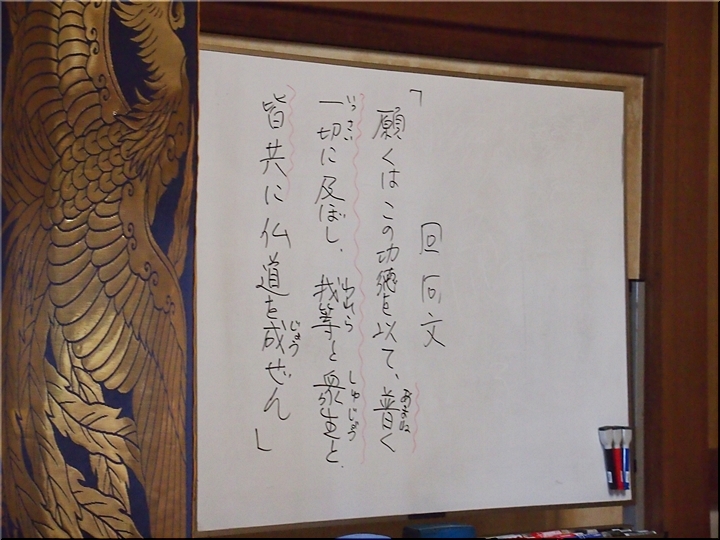 回向文
「願くはこの功徳を以て、普く
あまね
一切に及ぼし、我等と衆生と、
いっさい
われら
しゅじょう
皆共に仏道を成ぜん」
じょう